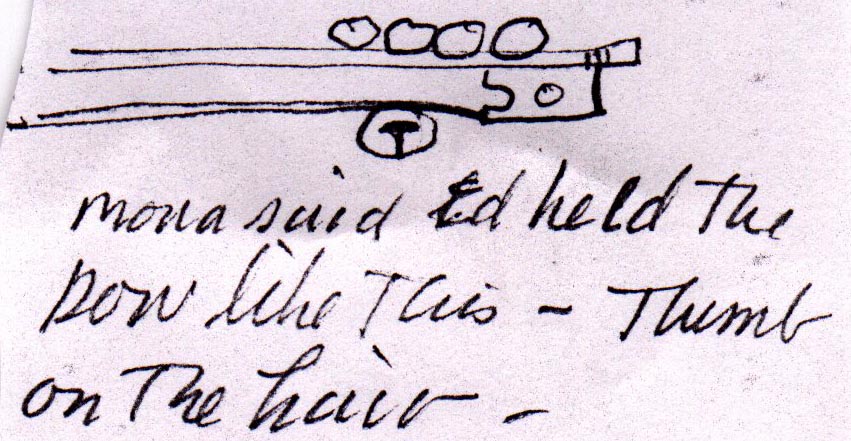 T
Mona said Ed held the
bow like this - Thumb
on the hair -